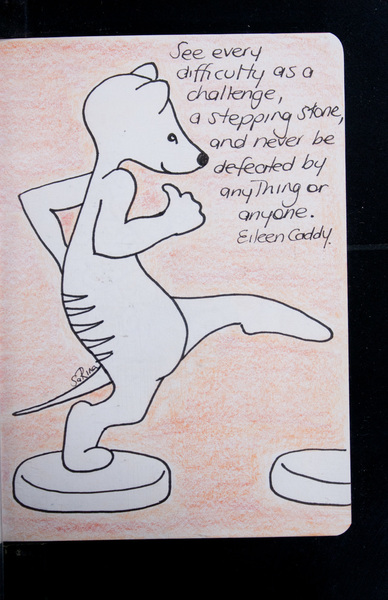 See every
difficulty as a
challenge,
a stepping stone,
and never be
defeated by
anything or
anyone.
Eileen Caddy.
SaRina